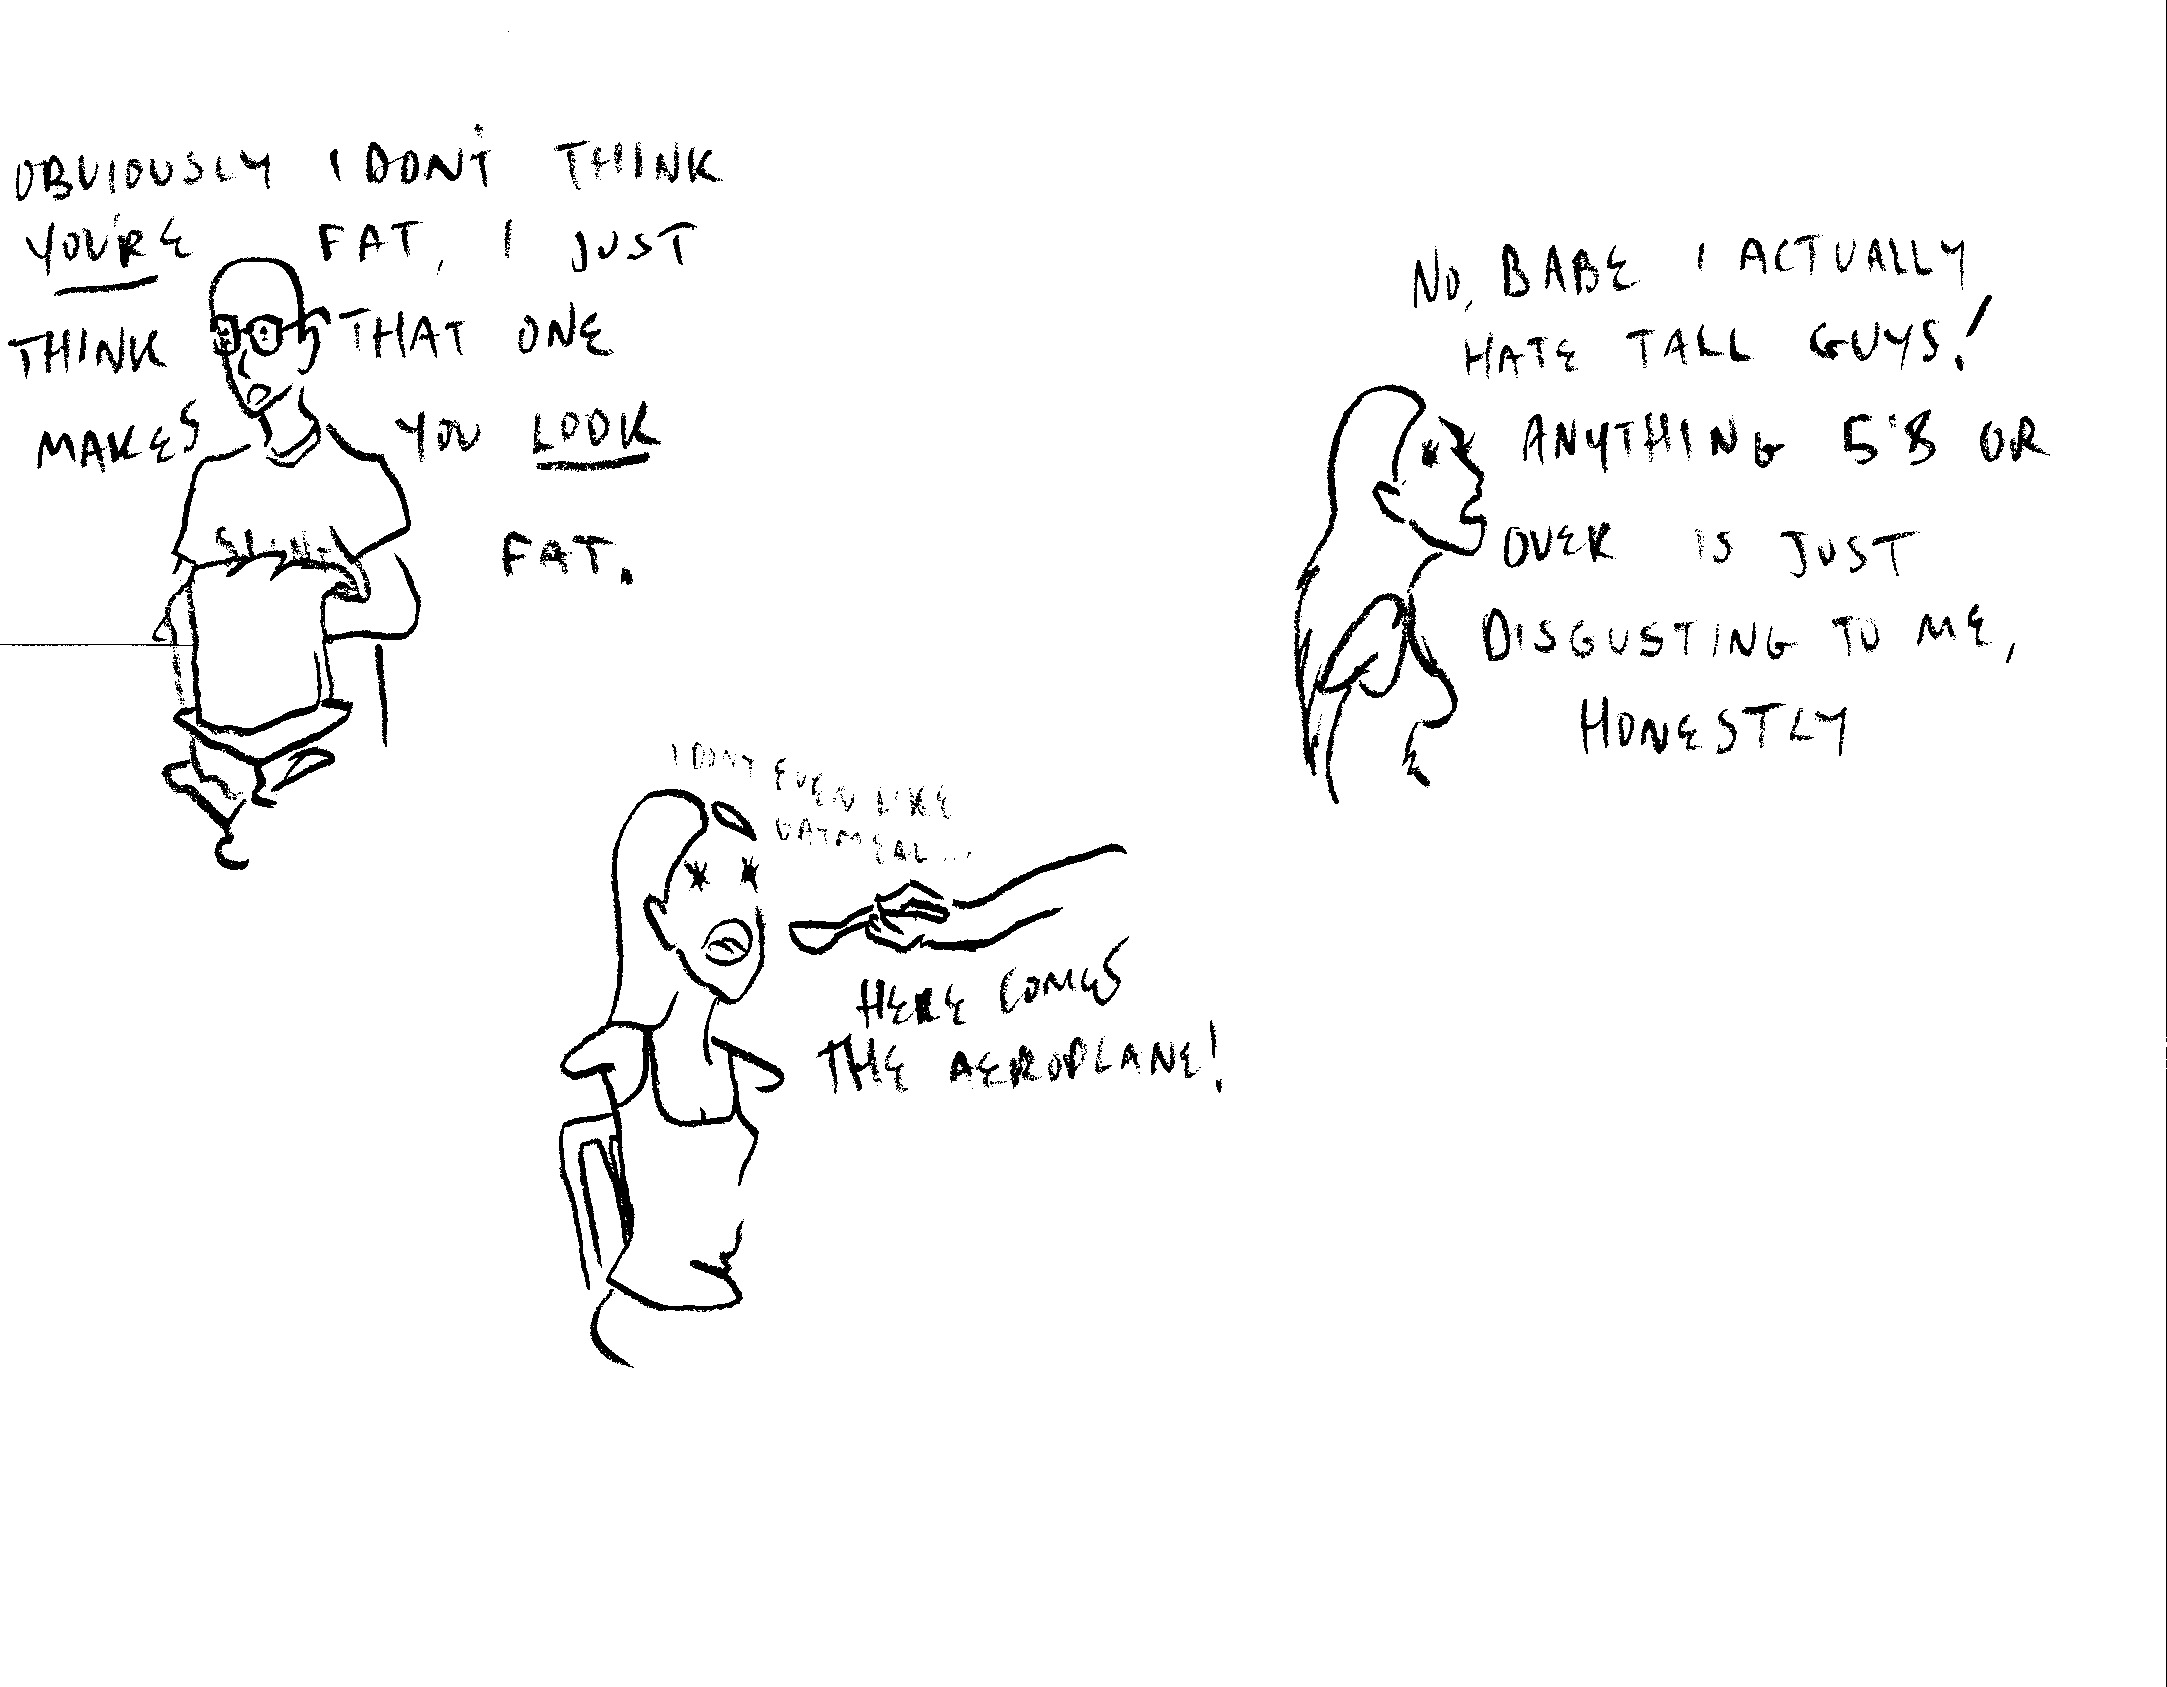 OBVIOUSLY I DON'T THINK
YOU'RE FAT, I JUST
THINK THAT ONE
MAKES YOU LOOK
FAT.
NO, BABE I ACTUALLY
HATE TALL GUYS!
ANYTHING 5'8 OR
OVER IS JUST
DISGUSTING TO ME,
HONESTLY
I DON'T EVEN LIKE
OATMEAL...
HERE COMES
THE AEROPLANE!